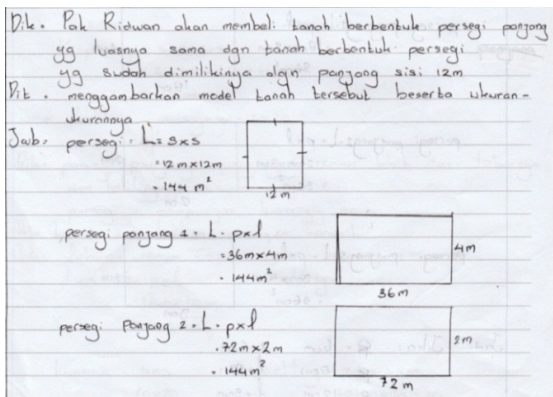 Dik. Pak Ridwan akan membeli tanah berbentuk persegi panjang
yg luasnya sama dgn tanah berbentuk persegi
yg sudah dimilikinya dgn panjang sisi 12m
Dit. menggambarkan model tanah tersebut beserta ukuran-
ukurannya
Jab. persegi. L = s×s
= 12 m × 12 m
= 144 m²
12 m
persegi panjang 1. L. p×l
= 36m × 4m
= 144 m²
4m
36 m
persegi panjang 2. L. p×l
= 72m × 2m
= 144 m²
2m
72 m